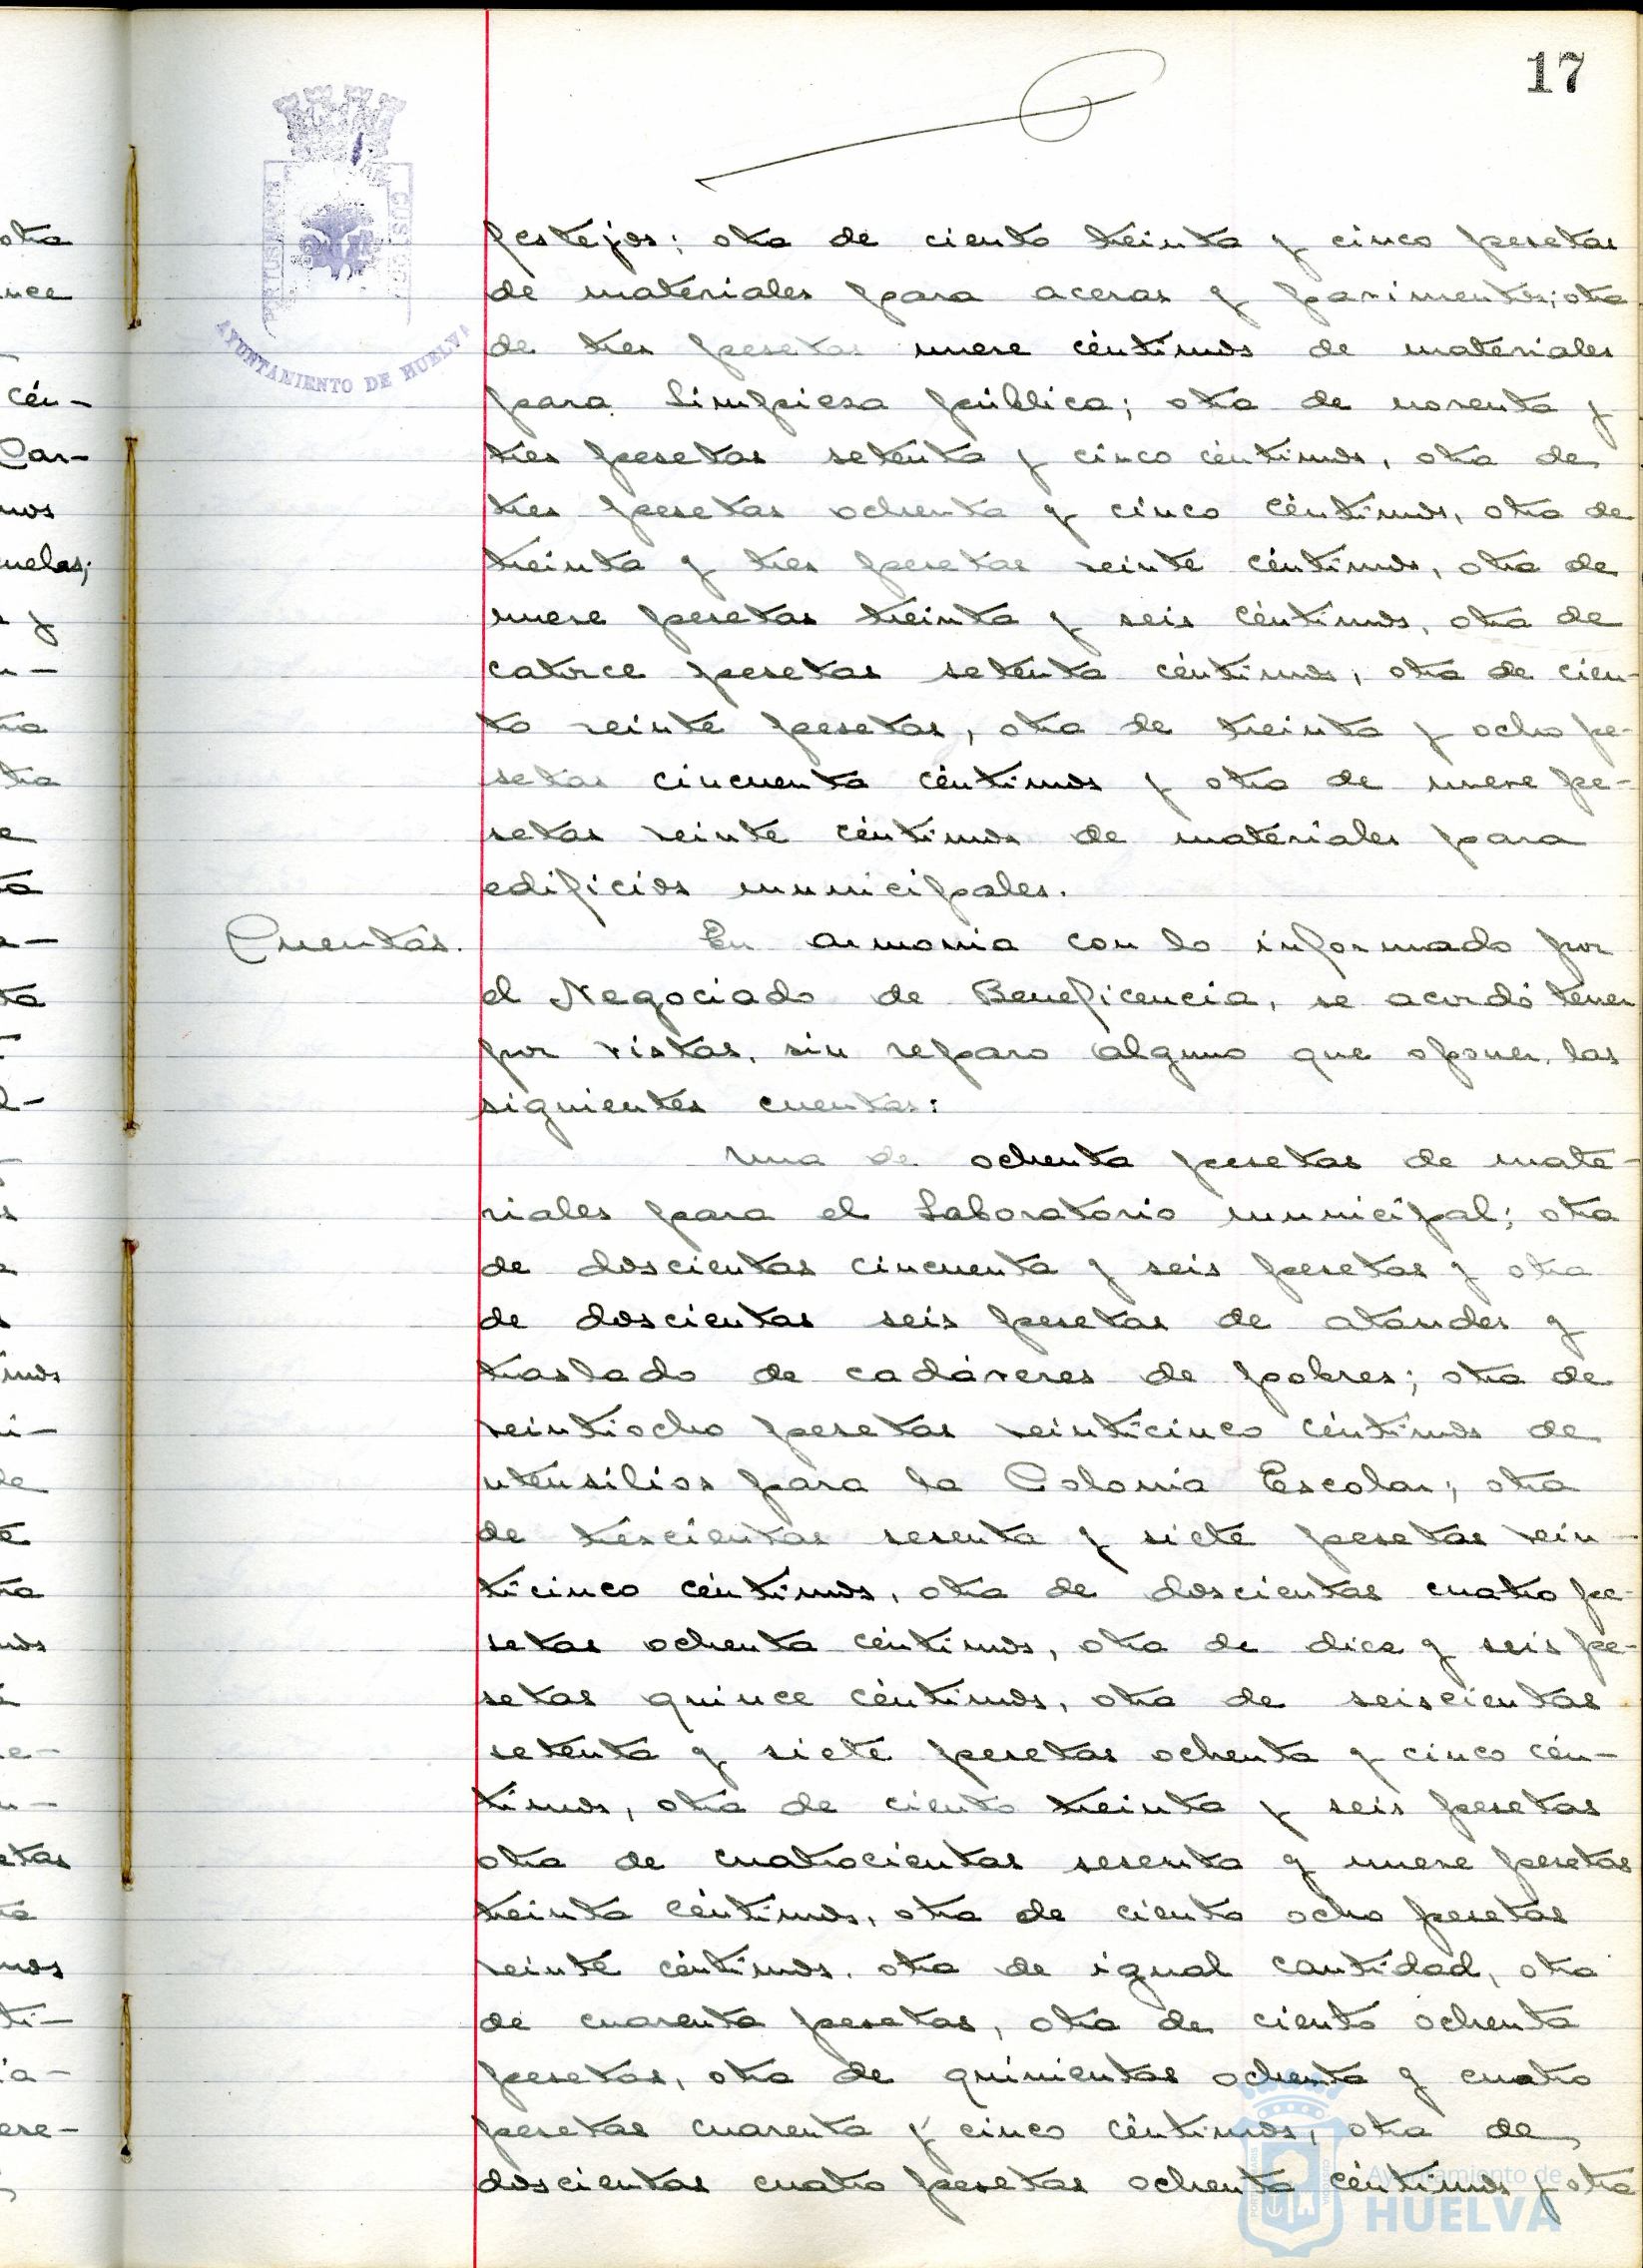 17
PORTUS MARIS
CUSTODIA
AYUNTAMIENTO DE HUELVA
festejos; otra de ciento treinta y cinco pesetas
de materiales para aceras y pavimentos; otra
de tres pesetas nueve céntimos de materiales
para Limpieza pública; otra de noventa y
tres pesetas setenta y cinco céntimos, otra de
tres pesetas ochenta y cinco céntimos, otra de
treinta y tres pesetas veinte céntimos, otra de
nueve pesetas treinta y seis céntimos, otra de
catorce pesetas setenta céntimos, otra de cien-
to veinte pesetas, otra de treinta y ocho pe-
setas cincuenta céntimos y otra de nueve pe-
setas veinte céntimos de materiales para
edificios municipales.
Cuentas. En armonia con lo informado por
el Negociado de Beneficencia, se acordó tener
por vistas, sin reparo alguno que oponer, las
siguientes cuentas:
Una de ochenta pesetas de mate-
riales para el Laboratorio municipal; otra
de doscientas cincuenta y seis pesetas y otra
de doscientas seis pesetas de ataudes y
traslado de cadáveres de pobres; otra de
veintiocho pesetas veinticinco céntimos de
utensilios para la Colonia Escolar; otra
de trescientas sesenta y siete pesetas vein-
ticinco céntimos, otra de doscientas cuatro pe-
setas ochenta céntimos, otra de diez y seis pe-
setas quince céntimos, otra de seiscientas
setenta y siete pesetas ochenta y cinco cén-
timos, otra de ciento treinta y seis pesetas
otra de cuatrocientas sesenta y nueve pesetas
treinta céntimos, otra de ciento ocho pesetas
veinte céntimos, otra de igual cantidad, otra
de cuarenta pesetas, otra de ciento ochenta
pesetas, otra de quinientas ochenta y cuatro
pesetas cuarenta y cinco céntimos, otra de
doscientas cuatro pesetas ochenta céntimos y otra
Ayuntamiento de
HUELVA